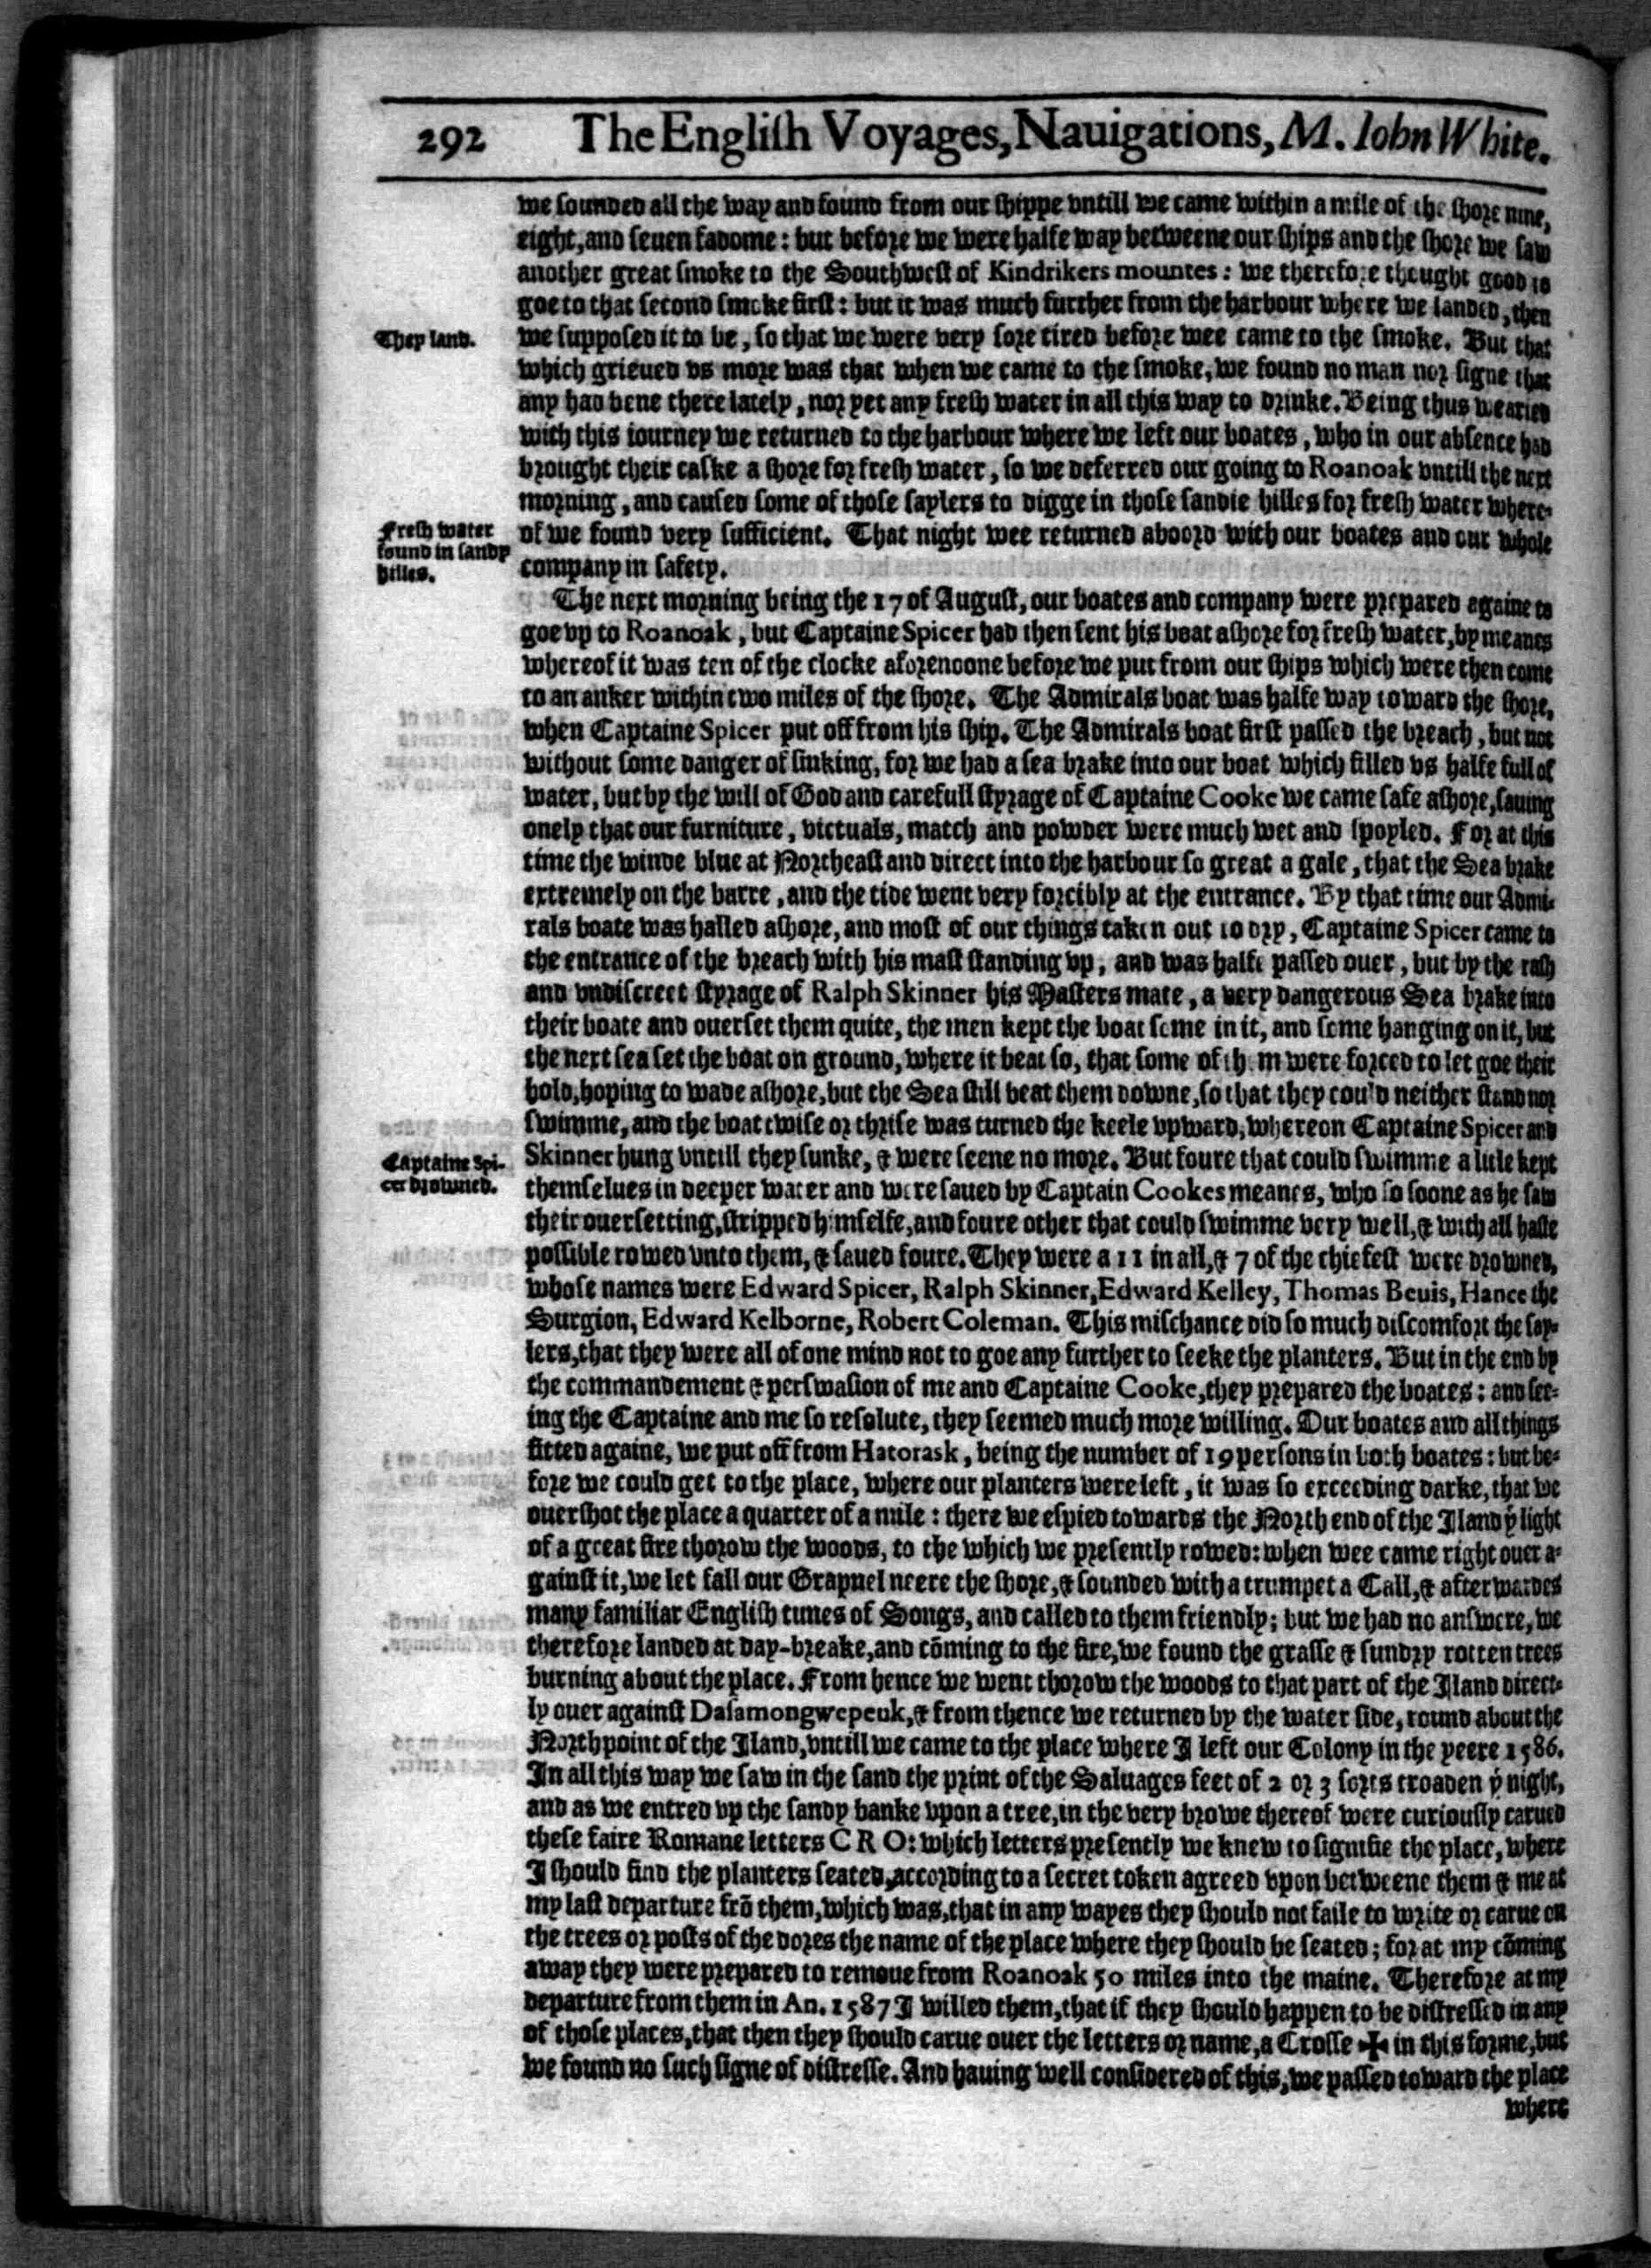 292 The English Voyages, Nauigations, M. Iohn White.
we sounded all the way and found from our shippe vntill we came within a mile of the shore nine,
eight, and seuen fadome: but before we were halfe way betweene our ships and the shore we saw
another great smoke to the Southwest of Kindrikers mountes: we therefore thought good to
goe to that second smoke first: but it was much further from the harbour where we landed, then
They land.
we supposed it to be, so that we were very sore tired before wee came to the smoke. But that
which grieued vs more was that when we came to the smoke, we found no man nor signe that
any had bene there lately, nor yet any fresh water in all this way to drinke. Being thus wearied
with this iourney we returned to the harbour where we left our boates, who in our absence had
brought their caske a shore for fresh water, so we deferred our going to Roanoak vntill the next
morning, and caused some of those saylers to digge in those sandie hilles for fresh water where-
Fresh water
found in sandy
hilles.
of we found very sufficient. That night wee returned aboord with our boates and our whole
company in safety.
The next morning being the 17 of August, our boates and company were prepared againe to
goe vp to Roanoak, but Captaine Spicer had then sent his boat ashore for fresh water, by meanes
whereof it was ten of the clocke aforenoone before we put from our ships which were then come
to an anker within two miles of the shore. The Admirals boat was halfe way toward the shore,
when Captaine Spicer put off from his ship. The Admirals boat first passed the breach, but not
without some danger of sinking, for we had a sea brake into our boat which filled vs halfe full of
water, but by the will of God and carefull styrage of Captaine Cooke we came safe ashore, sauing
onely that our furniture, victuals, match and powder were much wet and spoyled. For at this
time the winde blue at Northeast and direct into the harbour so great a gale, that the Sea brake
extremely on the barre, and the tide went very forcibly at the entrance. By that time our Admi-
rals boate was halled ashore, and most of our things taken out to dry, Captaine Spicer came to
the entrance of the breach with his mast standing vp, and was halfe passed ouer, but by the rash
and vndiscreet styrage of Ralph Skinner his Masters mate, a very dangerous Sea brake into
their boate and ouerset them quite, the men kept the boat some in it, and some hanging on it, but
the next sea set the boat on ground, where it beat so, that some of them were forced to let goe their
hold, hoping to wade ashore, but the Sea still beat them downe, so that they could neither stand nor
swimme, and the boat twise or thrise was turned the keele vpward, whereon Captaine Spicer and
Captaine Spi-
cer drowned.
Skinner hung vntill they sunke, & were seene no more. But foure that could swimme a litle kept
themselues in deeper water and were saued by Captain Cookes meanes, who so soone as he saw
their ouersetting, stripped himselfe, and foure other that could swimme very well, & with all haste
possible rowed vnto them, & saued foure. They were a 11 in all, & 7 of the chiefest were drowned,
whose names were Edward Spicer, Ralph Skinner, Edward Kelley, Thomas Beuis, Hance the
Surgion, Edward Kelborne, Robert Coleman. This mischance did so much discomfort the say-
lers, that they were all of one mind not to goe any further to seeke the planters. But in the end by
the commandement & perswasion of me and Captaine Cooke, they prepared the boates: and see-
ing the Captaine and me so resolute, they seemed much more willing. Our boates and all things
fitted againe, we put off from Hatorask, being the number of 19 persons in both boates: but be-
fore we could get to the place, where our planters were left, it was so exceeding darke, that we
ouershot the place a quarter of a mile: there we espied towards the North end of the Iland yͤ light
of a great fire thorow the woods, to the which we presently rowed: when wee came right ouer a-
gainst it, we let fall our Grapnel neere the shore, & sounded with a trumpet a Call, & afterwardes
many familiar English tunes of Songs, and called to them friendly; but we had no answere, we
therefore landed at day-breake, and cõming to the fire, we found the grasse & sundry rotten trees
burning about the place. From hence we went thorow the woods to that part of the Iland direct-
ly ouer against Dasamongwepeuk, & from thence we returned by the water side, round about the
North point of the Iland, vntill we came to the place where I left our Colony in the yeere 1586.
In all this way we saw in the sand the print of the Saluages feet of 2 or 3 sorts troaden yͤ night,
and as we entred vp the sandy banke vpon a tree, in the very browe thereof were curiously carued
these faire Romane letters C R O: which letters presently we knew to signifie the place, where
I should find the planters seated, according to a secret token agreed vpon betweene them & me at
my last departure frõ them, which was, that in any wayes they should not faile to write or carue on
the trees or posts of the dores the name of the place where they should be seated; for at my cõming
away they were prepared to remoue from Roanoak 50 miles into the maine. Therefore at my
departure from them in An. 1587 I willed them, that if they should happen to be distressed in any
of those places, that then they should carue ouer the letters or name, a Crosse ✠ in this forme, but
we found no such signe of distresse. And hauing well considered of this, we passed toward the place
where